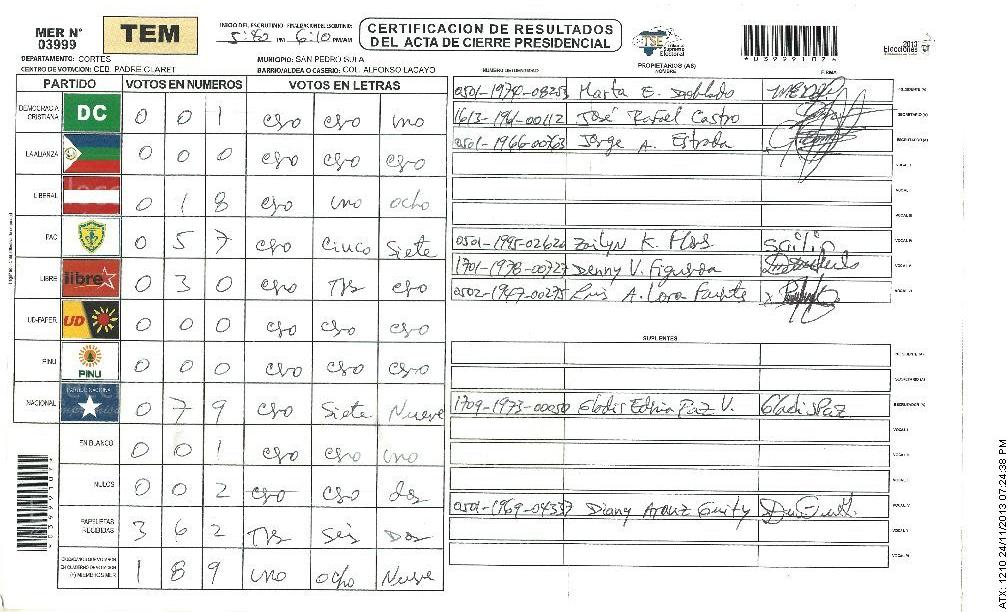 MER N° 03999
TEM
INICIO DEL ESCRUTINIO FINALIZACION DEL ESCRUTINIO:
PM 6:10 PM/AM
CERTIFICACION DE RESULTADOS
DEL ACTA DE CIERRE PRESIDENCIAL
TSE Tribunal Supremo Electoral
0399910 7
Elecciones 2013
DEPARTAMENTO: CORTES
MUNICIPIO: SAN PEDRO SULA
CENTRO DE VOTACION: CEB. PADRE CLARET
BARRIO/ALDEA O CASERIO: COL. ALFONSO LACAYO
NUMERO DE IDENTIDAD
PROPIETARIOS (AS)
NOMBRE
FIRMA
PARTIDO VOTOS EN NUMEROS VOTOS EN LETRAS
DEMOCRACIA CRISTIANA DC 0 0 1 cero cero uno
LA ALIANZA 0 0 0 cero cero cero
LIBERAL 0 1 8 cero uno ocho
PAC 0 5 7 cero Cinco Siete
LIBRE libre 0 3 0 cero Trs cero
UD-FAPER UD 0 0 0 cero cero cero
PINU PINU 0 0 0 cero cero cero
NACIONAL PARTIDO NACIONAL 0 7 9 cero Siete Nueve
EN BLANCO 0 0 1 cero cero uno
NULOS 0 0 2 cero cero dos
PAPELETAS RECIBIDAS 3 6 2 Trs Seis Dos
1 8 9 uno ocho Nueve
Marta E. PRESIDENTE (A)
José Rafael Castro SECRETARIO (A)
Jorge A. Estrada ESCRUTADOR (A)
VOCAL I
VOCAL II
VOCAL III
K. Flores VOCAL IV
Denny V. Figueroa VOCAL V
Luis A. VOCAL VI
SUPLENTES
PRESIDENTE (A)
SECRETARIO (A)
1709-1973-00050 Gladis Paz V. Gladis Paz ESCRUTADOR (A)
VOCAL I
VOCAL II
VOCAL III
Diany Arauz Guity VOCAL IV
VOCAL V
VOCAL VI
ATX: 1210 24/11/2013 07:24:38 PM